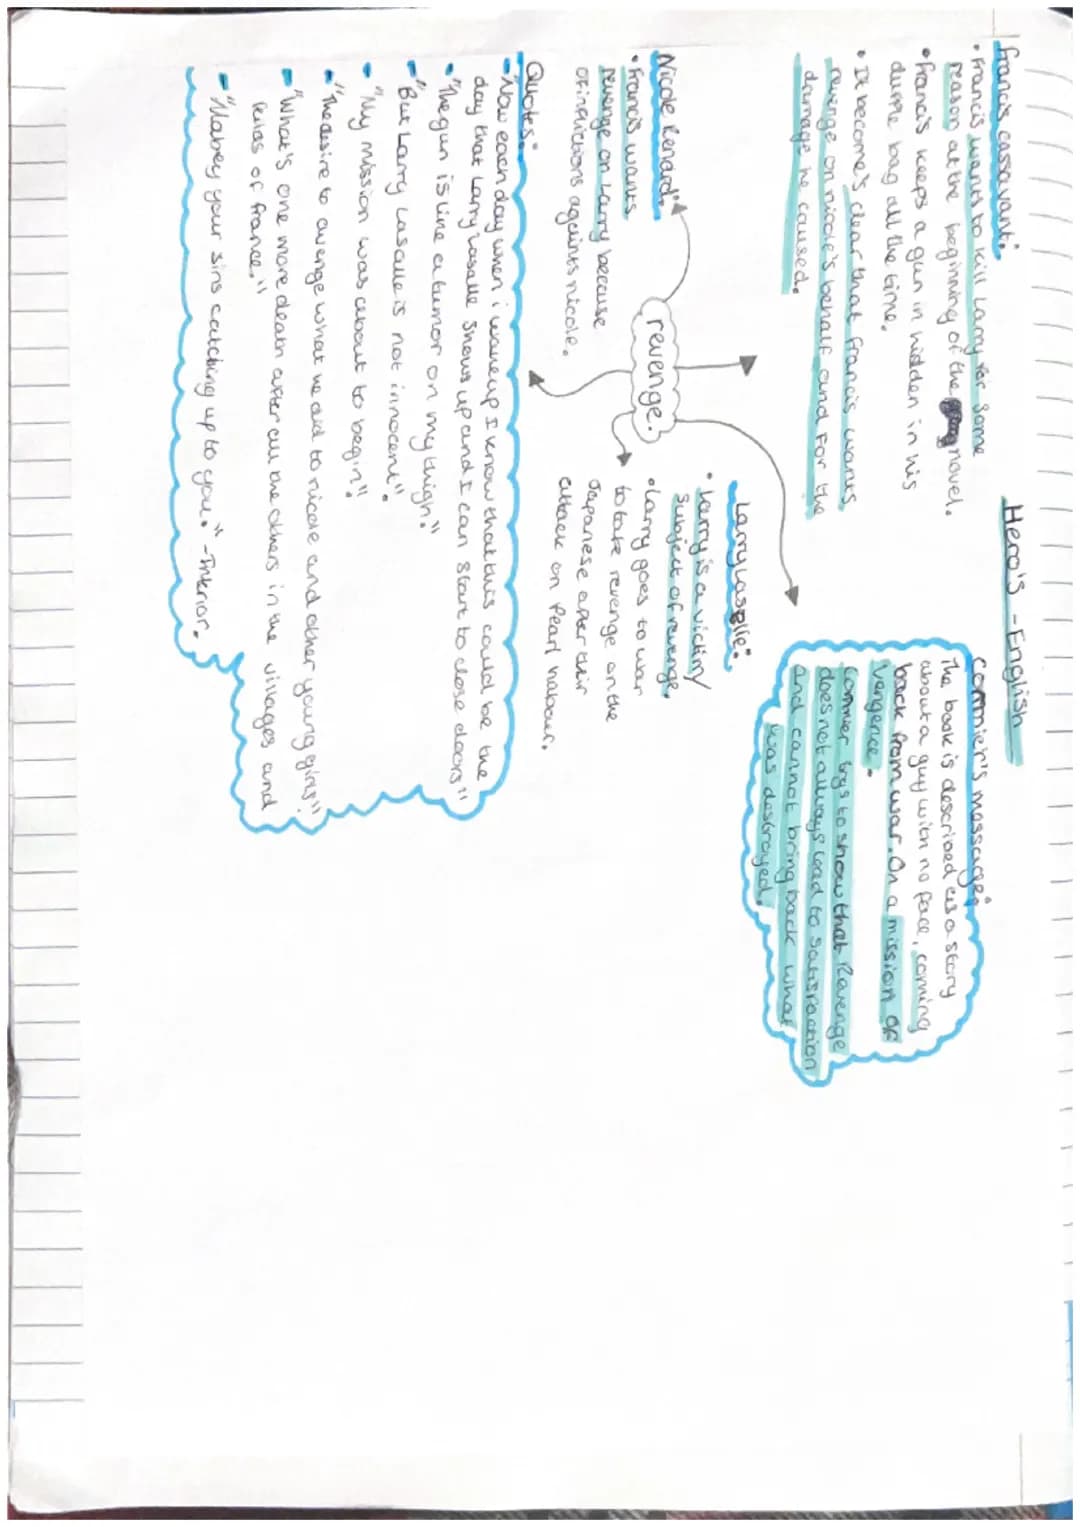 Hero's - English
Francis cassavant:
• Francis wants to kill Larry for some
reason at the beginning of the novel.
• Francis keeps a gun in hidden in his
duffle bag all the time.
• It become's clear that francis wants
revenge on nicole's behalf and for the
damage he caused.
Cormier's message:
The book is described as a story
about a guy with no face, coming
back from war. On a mission of
vengence.
Cormier trys to show that Revenge
does not always lead to satisfaction
and cannot bring back what
was destroyed.
Larry lasalle:
• Larry is a victim/
subject of revenge.
• Larry goes to war
to take revenge on the
Japanese after their
attack on Pearl habour.
revenge.
Nicole Renard:
• Francis wants
revenge on Larry because
of inflictions agaisnts nicole.
Quotes:
- "Now each day when i wake up I know that this could be the
day that Larry lasalle shows up and I can start to close doors"
- "The gun is like a tumor on my thigh."
- "But Larry Lasalle is not innocent".
- "My mission was about to begin"
- "The desire to avenge what he did to nicole and other young girls"
- "What's one more death after all the others in the villages and
feilds of france."
- "Mabey your sins catching up to you." - Interior.